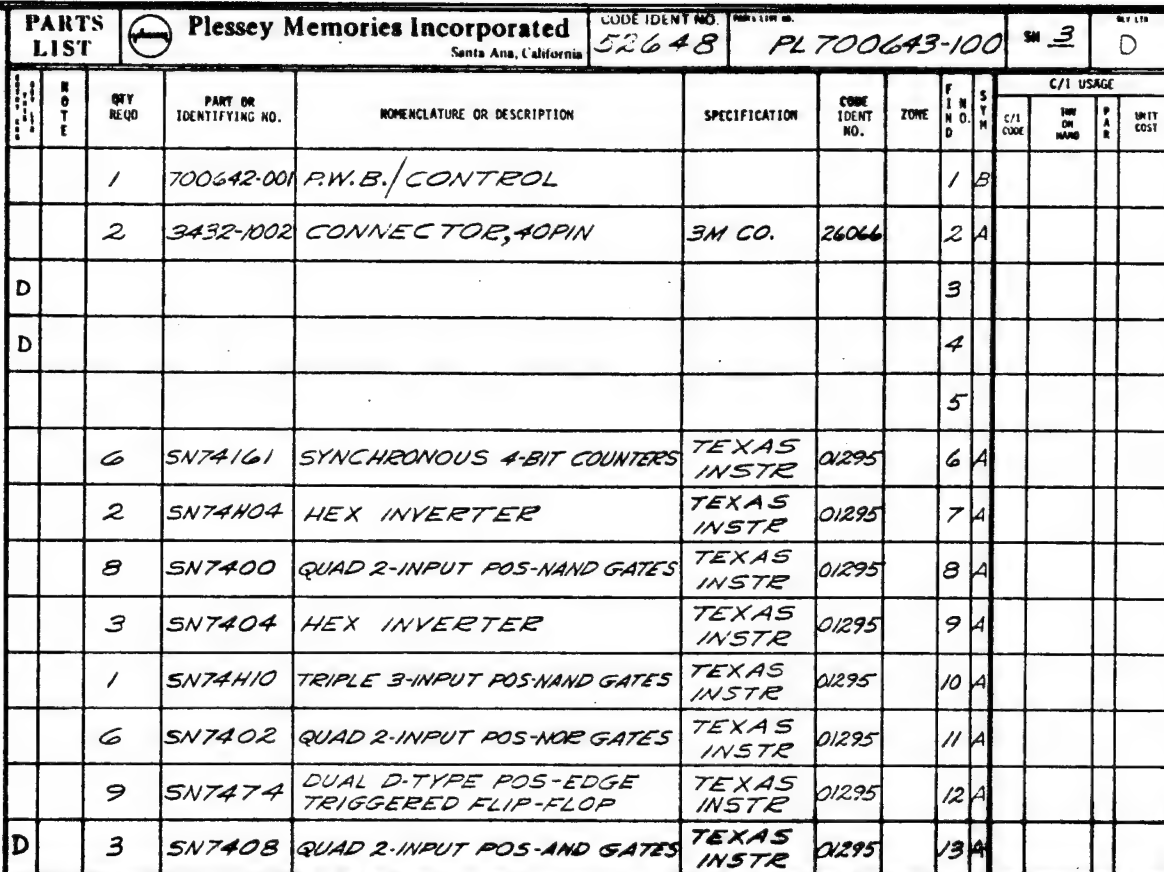 PARTS LIST Plessey Memories Incorporated Santa Ana, California CODE IDENT NO. 52648 PARTS LIST NO. PL700643-100 SH 3 REV LTR D
NOTE QTY REQD PART OR IDENTIFYING NO. NOMENCLATURE OR DESCRIPTION SPECIFICATION CODE IDENT NO. ZONE FIND NO. SYM C/I USAGE C/I CODE ON HAND PAR UNIT COST
1 700642-001 P.W.B./CONTROL 1 B
2 3432-1002 CONNECTOR, 40PIN 3M CO. 26066 2 A
D 3
D 4
5
6 SN74161 SYNCHRONOUS 4-BIT COUNTERS TEXAS INSTR 01295 6 A
2 SN74H04 HEX INVERTER TEXAS INSTR 01295 7 A
8 SN7400 QUAD 2-INPUT POS-NAND GATES TEXAS INSTR 01295 8 A
3 SN7404 HEX INVERTER TEXAS INSTR 01295 9 A
1 SN74H10 TRIPLE 3-INPUT POS-NAND GATES TEXAS INSTR 01295 10 A
6 SN7402 QUAD 2-INPUT POS-NOR GATES TEXAS INSTR 01295 11 A
9 SN7474 DUAL D-TYPE POS-EDGE TRIGGERED FLIP-FLOP TEXAS INSTR 01295 12 A
D 3 SN7408 QUAD 2-INPUT POS-AND GATES TEXAS INSTR 01295 13 A